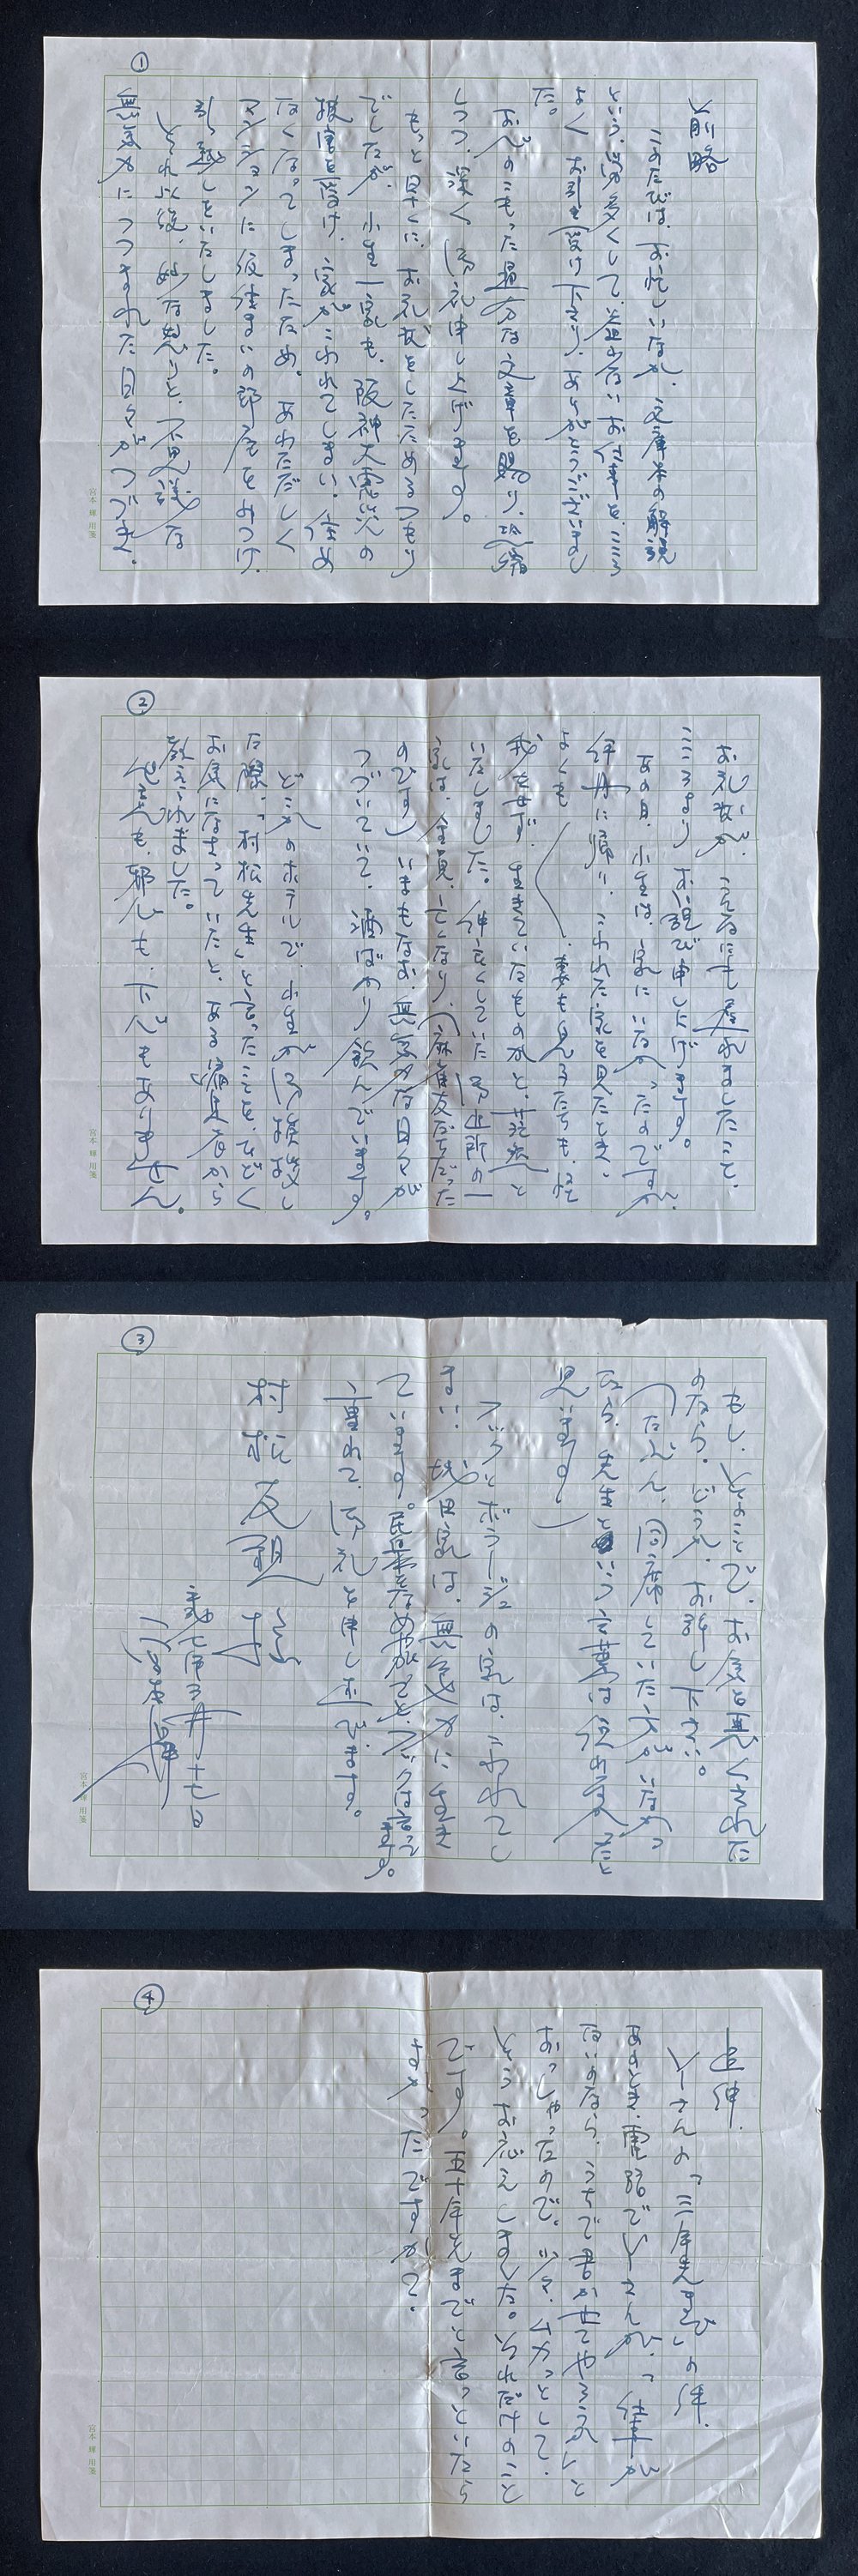 ①
前略
このたびは、お忙しいなか、文庫本の解説
という、労多くして、益少ないお仕事を、こころ
よくお引き受け下さり、ありがとうございまし
た。
お心のこもった過分な文章を賜り、恐縮
しつつ、深く御礼申し上げます。
もっと早くに、お礼状をしたためるつもり
でしたが、小生一家も、阪神大震災の
被害を受け、家がこわれてしまい、住め
なくなってしまったため、あわただしく
マンションに仮住まいの部屋をみつけ、
引っ越しをいたしました。
それ以後、妙な怒りと、不思議な
無気力につつまれた日々がつづき、
宮本輝用箋
②
お礼状が、こんなにも遅れましたこと、
こころよりお詫び申し上げます。
あの日、小生は、家にいなかったのですが、
伊丹に帰り、こわれた家を見たとき、
よくも、妻も息子たちも、怪
我もせず、生きていたものかと、茫然と
いたしました。仲良くしていた御近所の一
家は、全員、亡くなり、(麻雀友だちだった
のです)いまもなお、無気力な日々が
つづいていて、酒ばかり飲んでいます。
どこかのホテルで、小生が御挨拶し
た際、「村松先生」と言ったことを、ひどく
お気になさっていたと、ある編集者から
教えられました。
他意も、邪心も、下心もありません。
宮本輝用箋
③
もし、そのことで、お気を悪くされた
のなら、どうか、お許し下さい。
(たぶん、同席していた方がいなかっ
たら、先生という言葉は使わなかったと
思います)
フックとボラージュの家は、こわれてし
まい、地田家は、無気力に生き
ています。民草をなめやがってと、フックは言って
ます。
重ねて、御礼を申し述べます。
村松友視様
三月十七日
宮本輝
宮本輝用箋
④
追伸
Yさんの「三年先まで」の件。
あのとき、電話でYさんが、「仕事が
ないのなら、うちで書かせてやろうか」と
おっしゃったので、少々、ムカっとして、
そうお応えしました。それだけのこと
です。五十年先までと言っといたら
よかったですかね。
宮本輝用箋